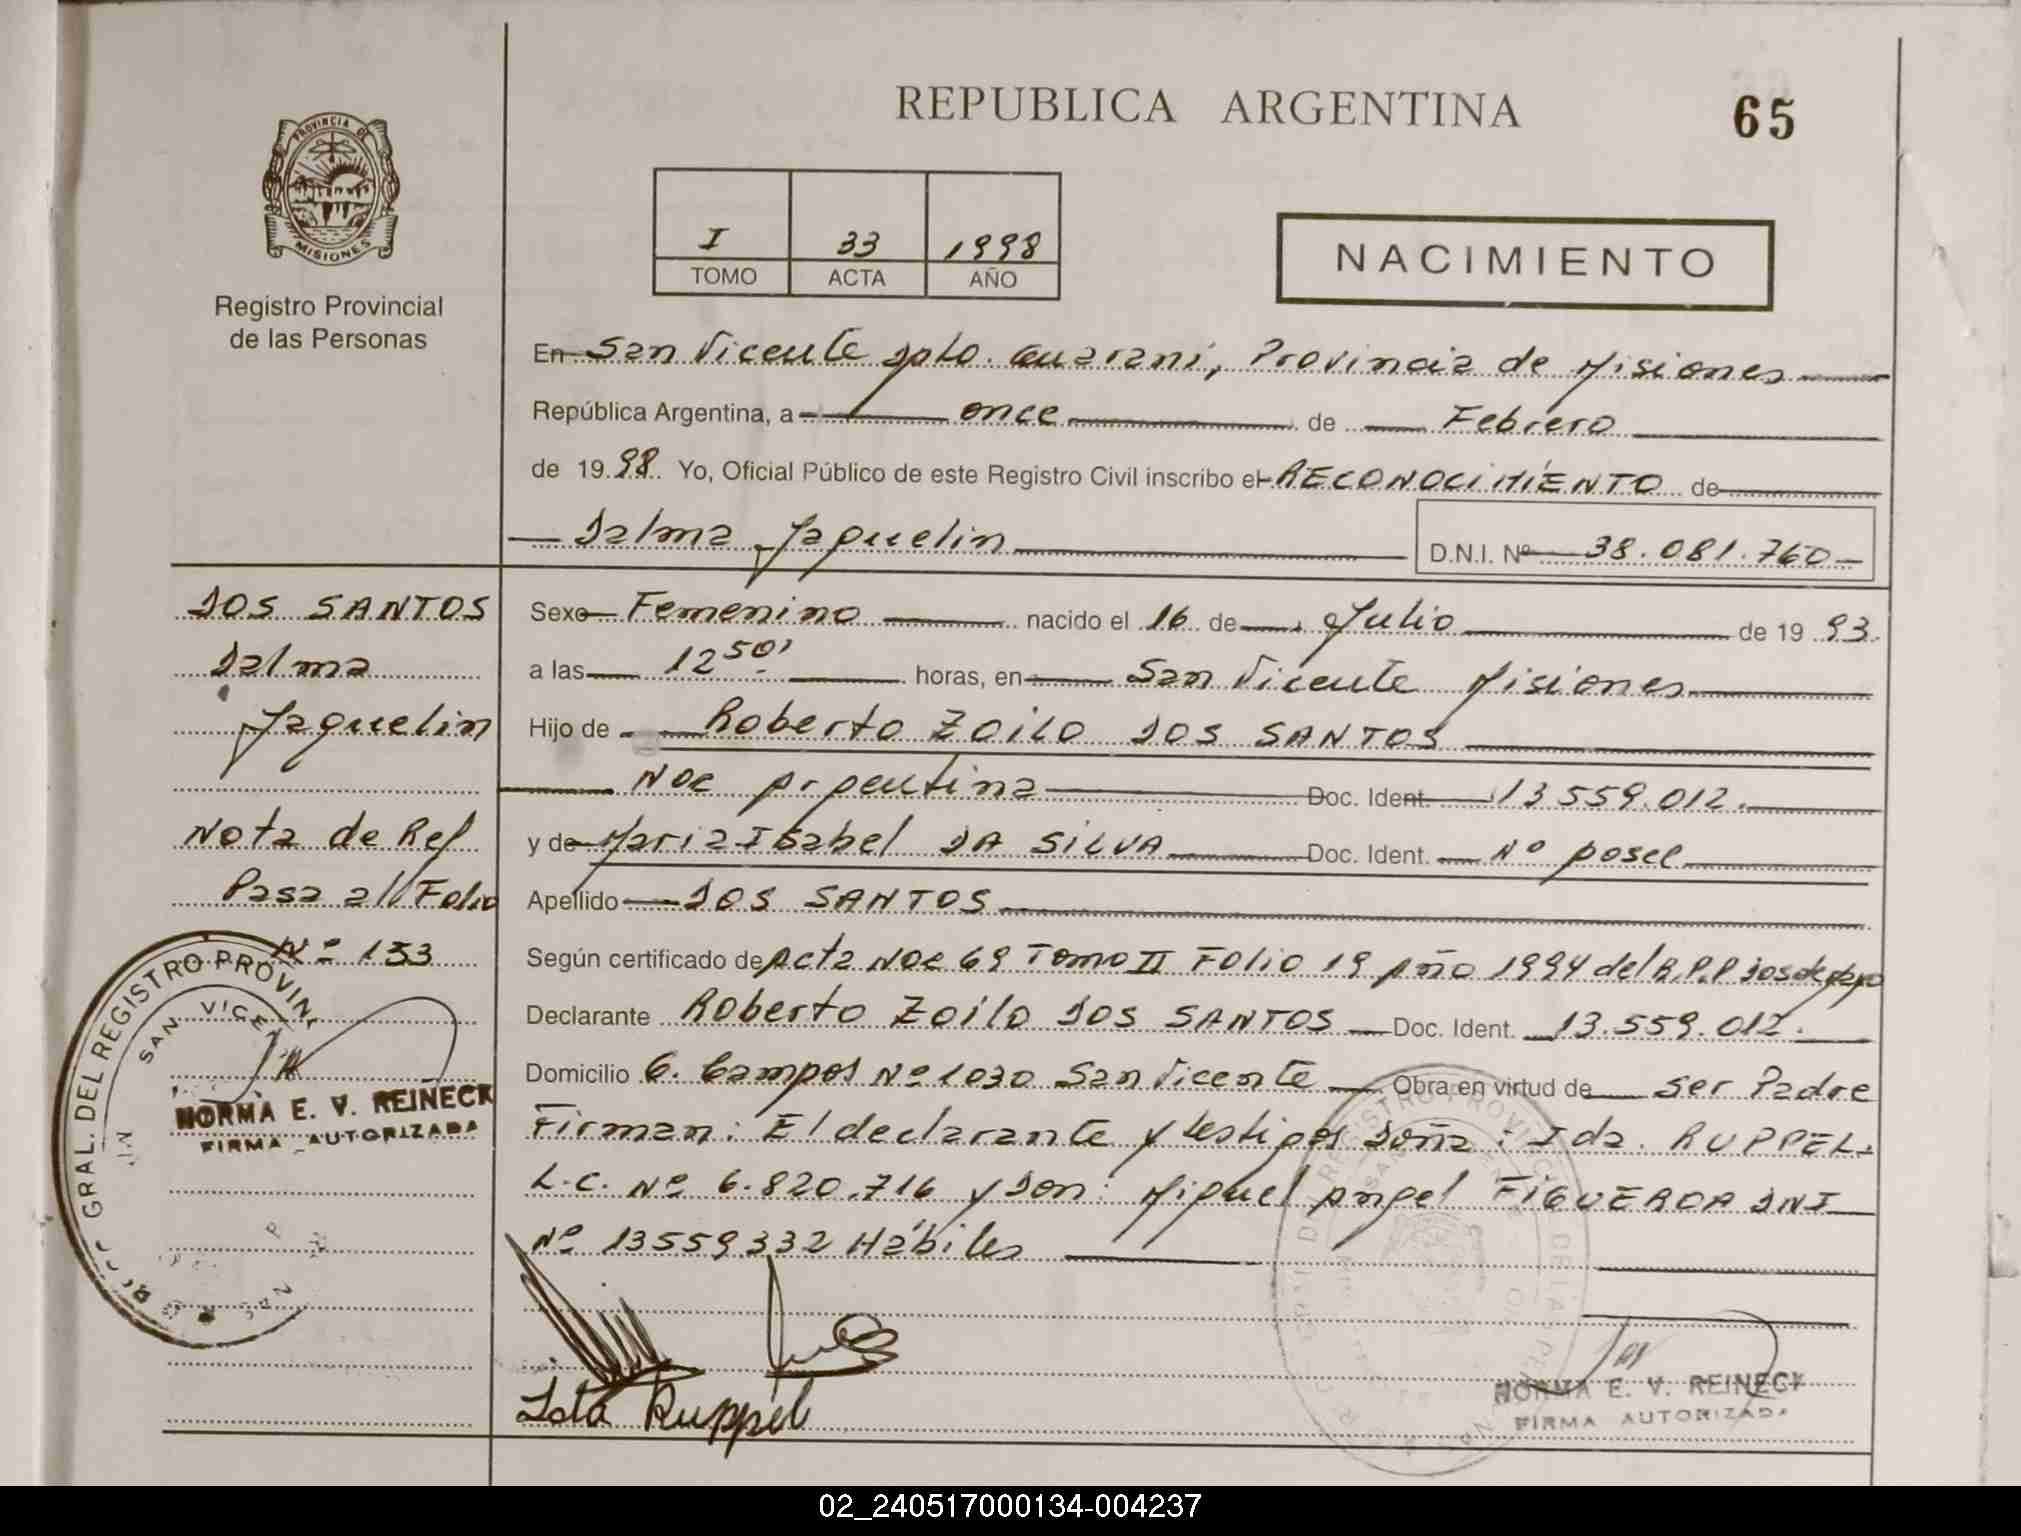 REPUBLICA ARGENTINA
65
PROVINCIA DE
MISIONES
Registro Provincial
de las Personas
I 33 1998
TOMO ACTA AÑO
NACIMIENTO
En San Vicente Dpto. Guaraní, Provincia de Misiones
República Argentina, a once de Febrero
de 1998 Yo, Oficial Público de este Registro Civil inscribo el RECONOCIMIENTO de
Dalma Jaquelin D.N.I. Nº 38.081.760
DOS SANTOS
Dalma
Jaquelin
Nota de Ref
Pasa al Folio
Nº 153
Sexo Femenino nacido el 16 de Julio de 1993
a las 12 50' horas, en San Vicente Misiones
Hijo de Roberto Zoilo DOS SANTOS
Nac Argentina Doc. Ident. 13.559.012.
y de Maria Isabel DA SILVA Doc. Ident. Nº posee
Apellido DOS SANTOS
Según certificado de Acta Nac 69 Tomo II Folio 19 Año 1994 del R.P.P Dos de Mayo
Declarante Roberto Zoilo DOS SANTOS Doc. Ident. 13.559.012.
Domicilio C. Campos Nº 1030 San Vicente Obra en virtud de Ser Padre
Firman: El declarante y testigos Doña: Ida. RUPPEL
L.C. Nº 6.820.716 y Don: Miguel Angel FIGUEROA DNI
Nº 13559332 Hábiles
GRAL. DEL REGISTRO PROVIN
SAN VICE
NORMA E. V. REINECK
FIRMA AUTORIZADA
Ida Ruppel
NORMA E. V. REINECK
FIRMA AUTORIZADA
02_240517000134-004237